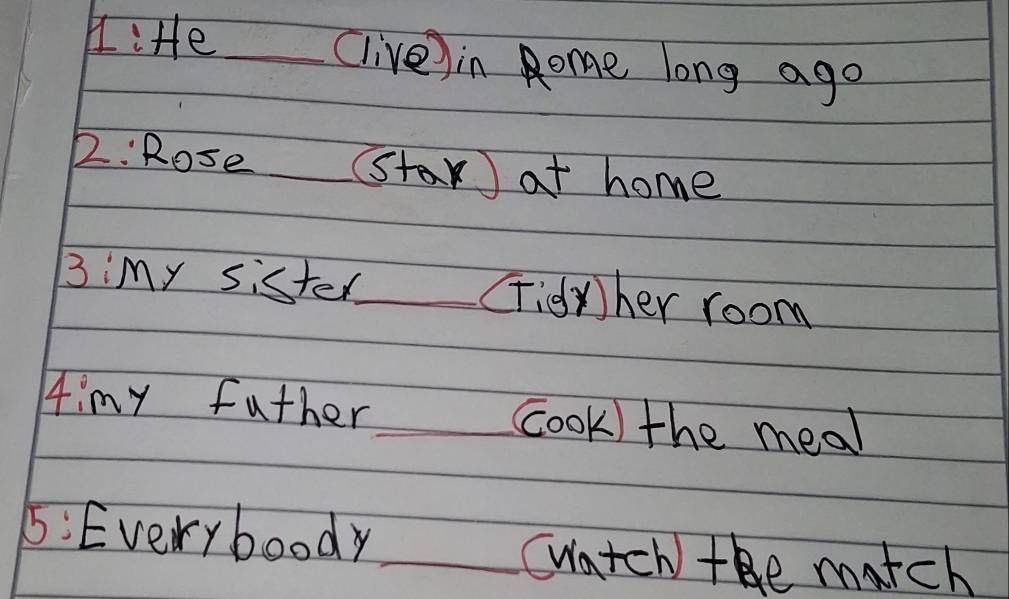 1: He ____ (live) in Rome long ago
2: Rose ____ (stay) at home
3: My sister ____ (Tidy) her room
4: my futher ____ (cook) the meal
5: Everyboody ____ (watch) the match